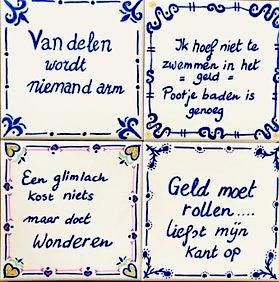 Van delen
wordt
niemand arm
Ik hoef niet te
zwemmen in het
= geld =
Pootje baden is
genoeg
Een glimlach
kost niets
maar doet
Wonderen
Geld moet
rollen....
liefst mijn
kant op